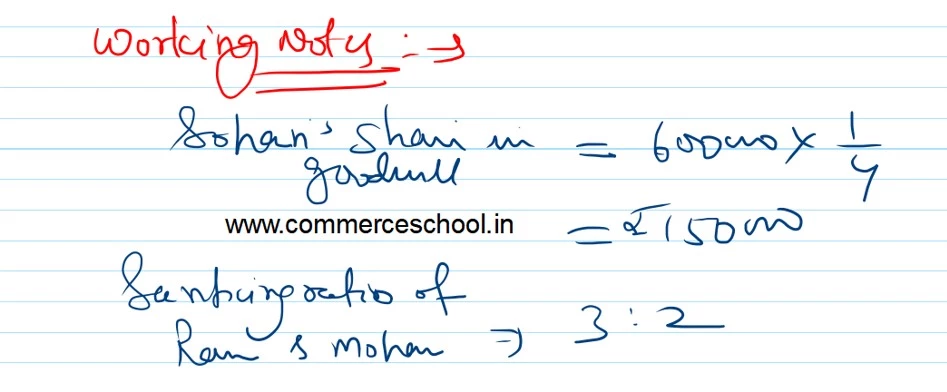 Working Notes :→
Sohan's Share in goodwill = 600000 × 1/4
www.commerceschool.in
= ₹150000
Sacrificing ratio of
Ram & Mohan ⇒ 3 : 2